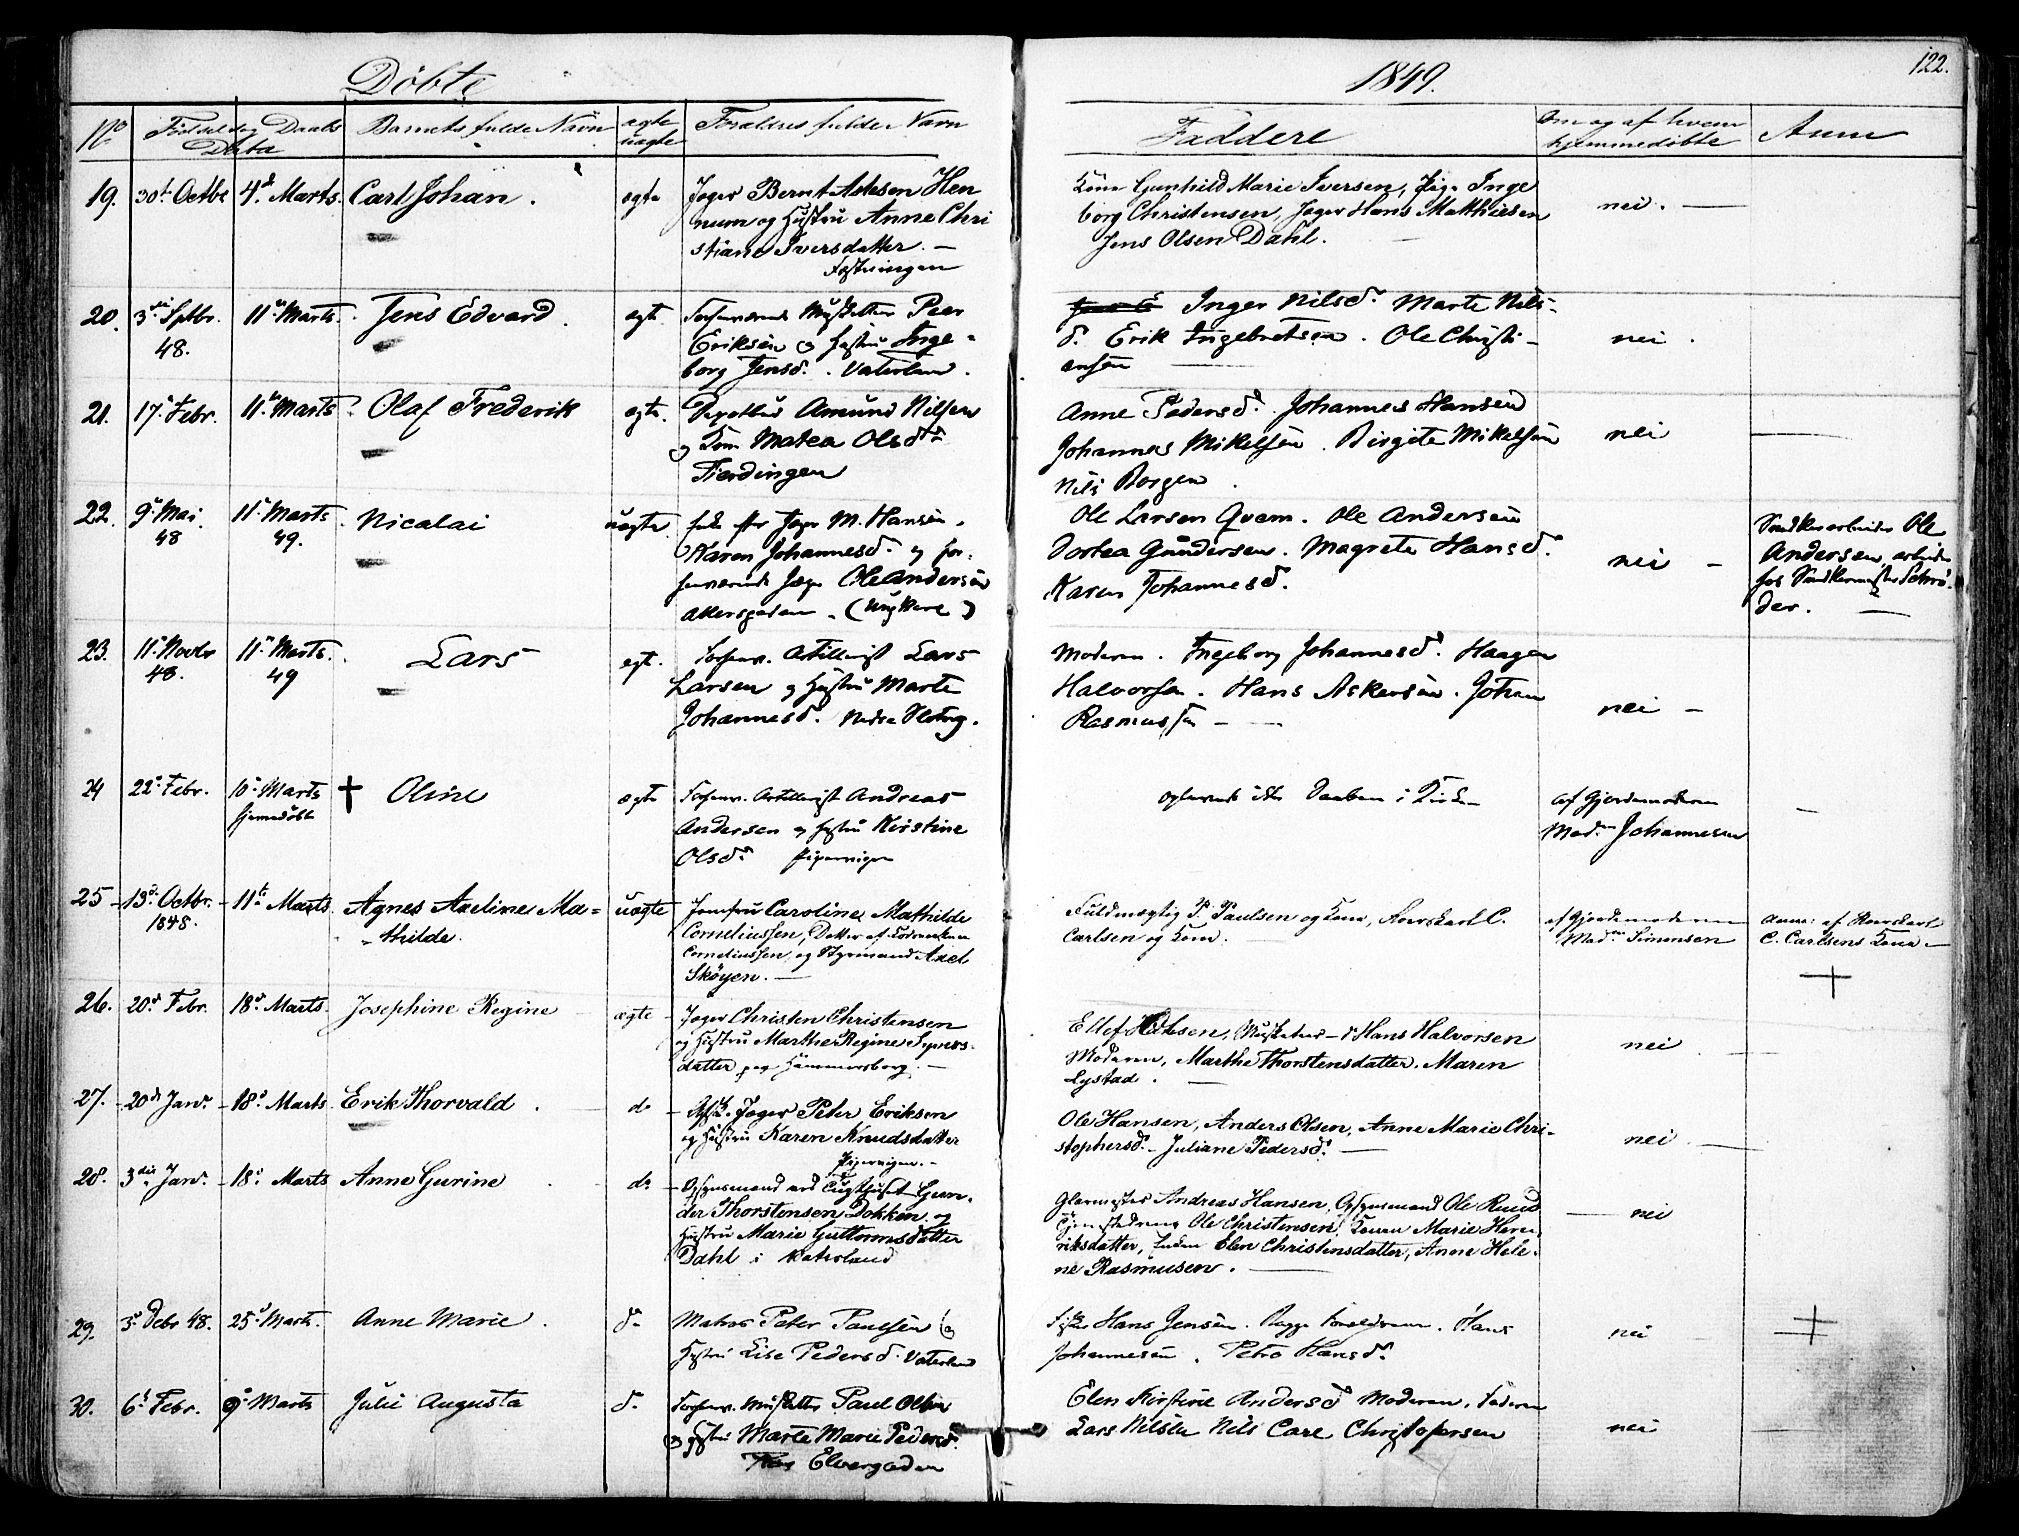 Döbte
1849.
122.
No Fødselsdag Daabs Barnets fulde Navn ægte Forældres fulde Navn Faddere Om og af hvem Anm
Data uægte hjemmedøbte
19. 30te Octbr 4de Marts. Carl Johan. ægte Jæger Bernt Hen
num og Hustru Anne Chri
stiane Iversdatter. —
Fæstningen
Kone Gunhild Marie Iversen, Pige Inge
borg Christensen, Jæger Hans Matthiesen
Jens Olsen Dahl.
nei. —
20. 3die Sptbr. 11te Marts. Jens Edvard. ægt. Forhenværende Musketter Peer
48. Eriksen og Hustru Inge-
borg Jensd. Vaterland.
Inger Nilsd. Marte Nils-
d. Erik Ingebretsen. Ole Christi-
ansen
nei.
21. 17. Febr. 11te Marts. Olaf Frederik ægte. Amund Nilsen
og Kone Matea Olsdtr
Fierdingen
Anne Pedersd. Johannes Hansen
Johannes Mikelsen. Birgite Mikelsen
Nils Borgen.
nei
22. 9. Mai 11te Marts. Nicolai uægte. Jæger M. Hansen.
48 49. Karen Johannesd. og for-
henværende Jæger Ole Andersen
Akersgaden. (Ungkarl)
Ole Larsen Qvem. Ole Andersen
Dortea Gundersen. Magrete Hansd.
Karen Johannesd.
nei —
Snedkerarbeider Ole
Andersen, arbeider
hos Snedkermester Schrö-
der. —
23. 11te Novbr 11te Marts. Lars ægt. Forhenv. Artillerist Lars
48. 49 Larsen og Hustru Marte
Johannesd. Nedre Slotsg.
Moderen. Ingeborg Johannesd. Haagen
Halvorsen. Hans Askersen. Johan
Rasmussen —
nei —
24 22de Febr. 10de Marts † Oline ægte Forhenv. Artillerist Andreas
hjemmedöbt Andersen og Hustru Kirstine
Olsd. Pipervigen
oplevede ikke Daaben i Kirken
af Gjordemoderen
Mad. Johannesen
—
25 13de Octbr. 11te Marts. Agnes Axeline Ma= uægte Jomfru Caroline Mathilde
1848. thilde. Corneliussen, Datter af
Corneliussen, og Styrmand Axel
Sköyen. —
Fuldmægtig P. Paulsen og Kone, C.
Carlsen og Kone.
af Gjordemoderen
Madm Simonsen
Anm: af
C. Carlsens Kone —
†
26. 20de Febr. 18de Marts. Josephine Regine ægte Jæger Christen Christensen
og Hustru Marthe Regine
datter paa Hammersborg. —
Ellef Hansen, Musketeer — Hans Halvorsen
Moderen, Marthe Thorstensdatter. Maren
Lystad. —
nei
27. 20de Janr. 18de Marts Erik Thorvald. do Jæger Peter Eriksen
og Hustru Karen Knudsdatter
Pipervigen. —
Ole Hansen, Anders Olsen, Anne Marie Chri-
stophersd. Juliane Pedersd. —
nei. —
28. 3die Janr. 18de Marts Anne Gurine do Opsynsmand ved Tugthuset Gun-
der Thorstensen Dokken, og
Hustru Marie Guttormsdatter
Dahl i Vaterland
Glarmester Andreas Hansen, Opsynsmand Ole Ruud
Ole Christensen, Konen Marie Hen-
riksdatter, Enken Elen Christensdatter, Anne Hele-
ne Rasmusen. —
— nei
29. 3de Debr 48. 25de Marts. Anne Marie. do Matros Peter Paulsen og
Hustru Lise Pedersd. Vaterland
Hans Jensen. Begge Forældrene. Hans
Johannesen. Petro Hansd.
nei
30. 6te Febr. 9de Marts Julie Augusta do Forhenv. Musketter Paul Olsen
og Hustru Marte Marie Pedersd.
Elvergaden
Elen Kirstine Andersd Moderen. Faderen
Lars Nilsen Nils Carl Christofersen
nei